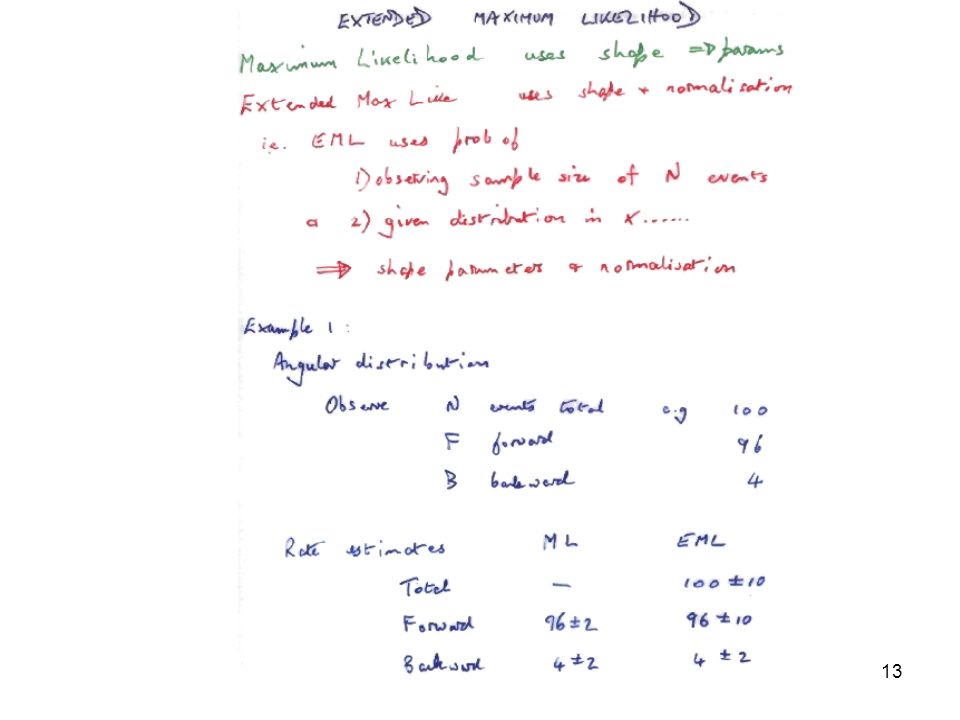 EXTENDED MAXIMUM LIKELIHOOD
Maximum Likelihood uses shape ⇒ params
Extended Max Like uses shape + normalisation
i.e. EML uses prob of
1) observing sample size of N events
& 2) given distribution in x......
⇒ shape parameters & normalisation
Example 1 :
Angular distribution
Observe N events total e.g 100
F forward 96
B backward 4
Rate estimates ML EML
Total — 100 ± 10
Forward 96 ± 2 96 ± 10
Backward 4 ± 2 4 ± 2
13